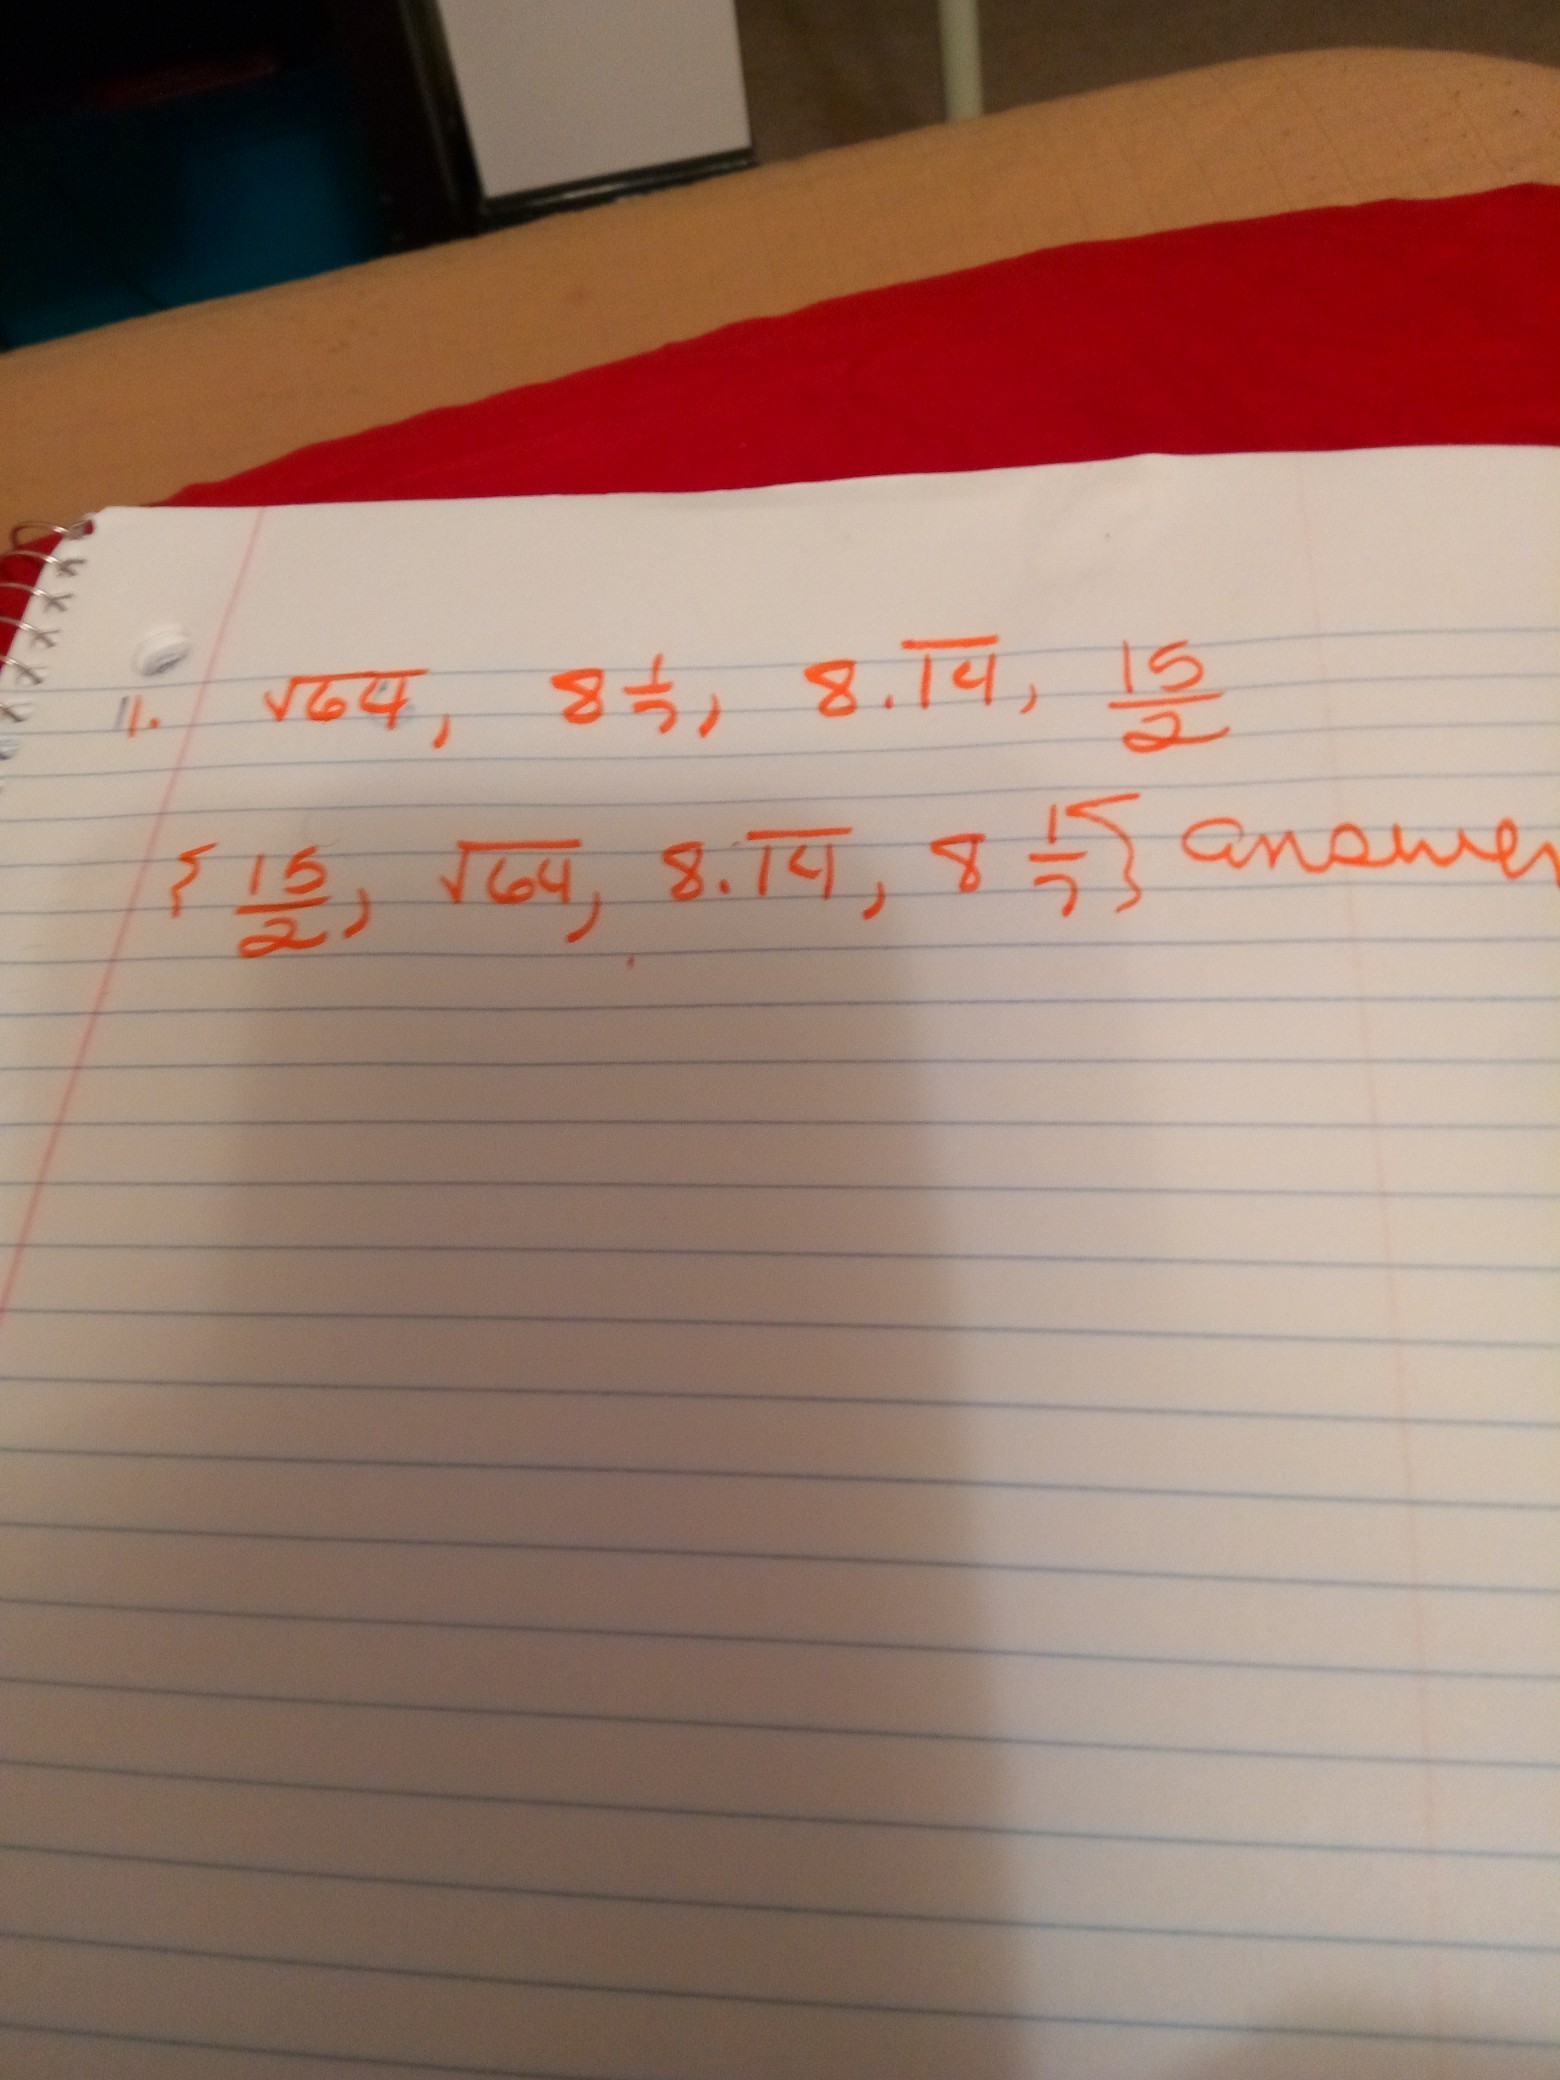 11. √64, 8 1/7, 8.1̅4̅, 15/2
{15/2, √64, 8.1̅4̅, 8 1/7} answer